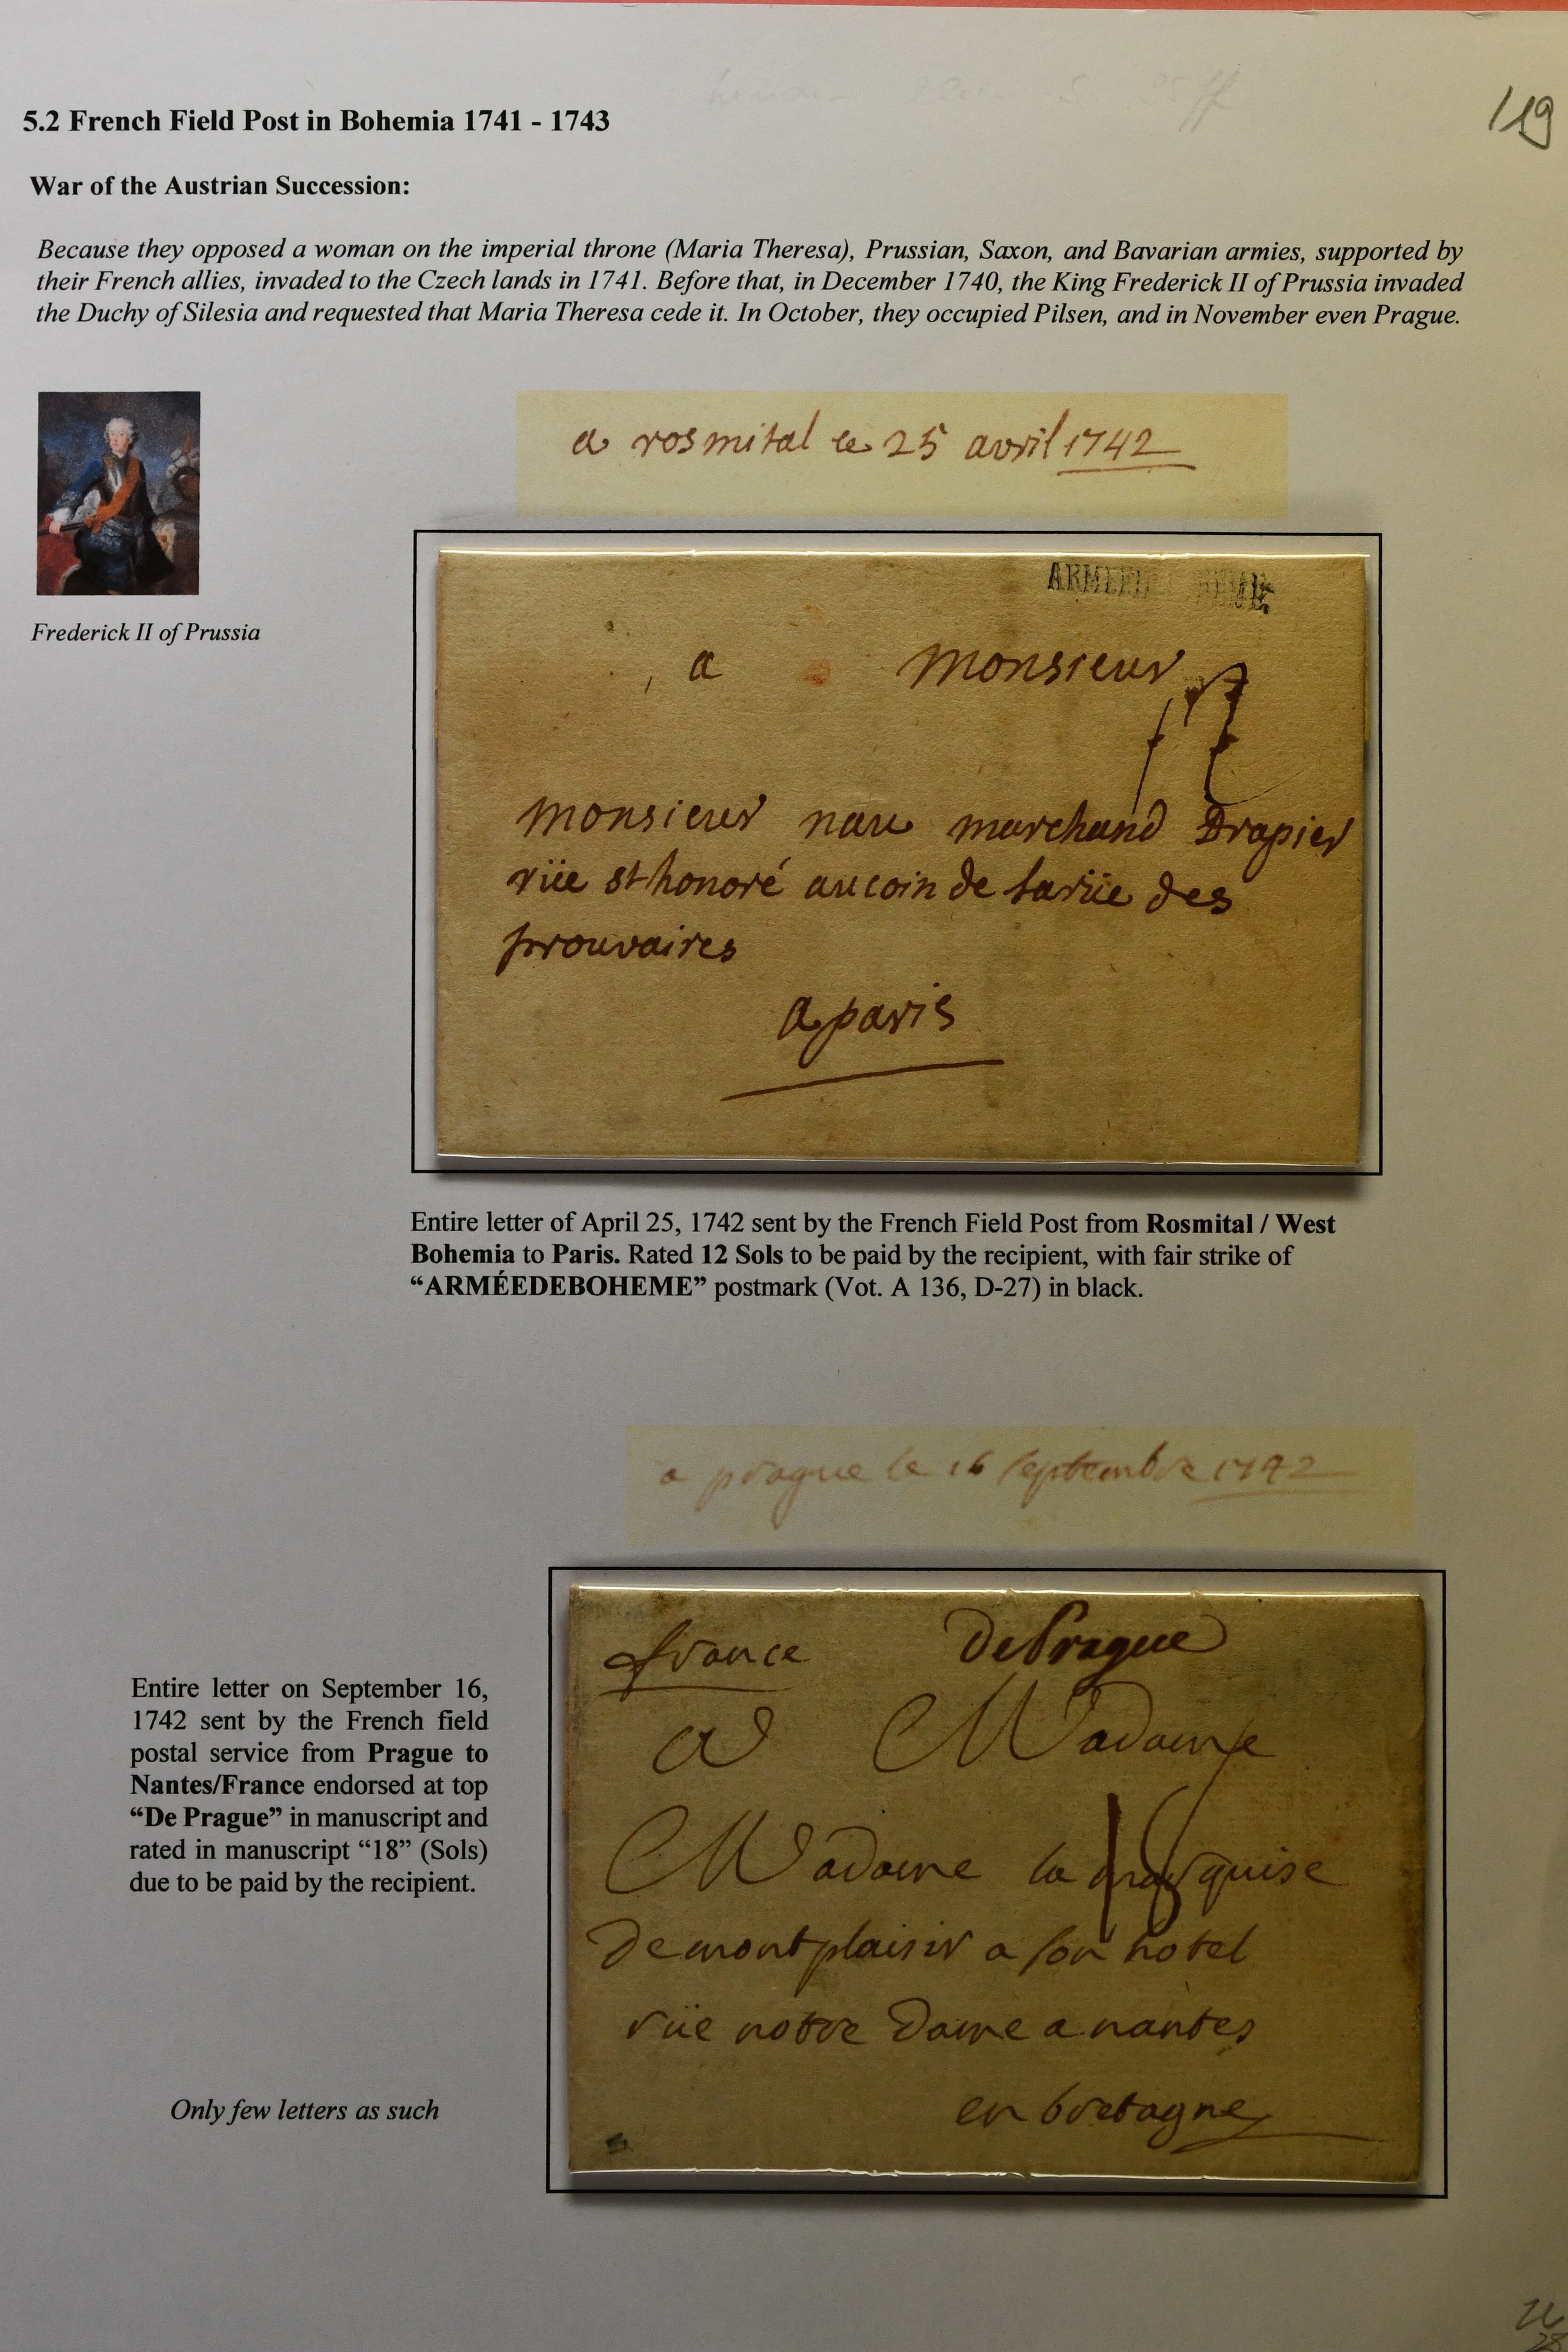 5.2 French Field Post in Bohemia 1741 - 1743
119
War of the Austrian Succession:
Because they opposed a woman on the imperial throne (Maria Theresa), Prussian, Saxon, and Bavarian armies, supported by
their French allies, invaded to the Czech lands in 1741. Before that, in December 1740, the King Frederick II of Prussia invaded
the Duchy of Silesia and requested that Maria Theresa cede it. In October, they occupied Pilsen, and in November even Prague.
Frederick II of Prussia
a rosmital le 25 avril 1742
a monsieur
monsieur nau marchand Drapier
rüe st honoré au coin de la rüe des
prouvaires
a paris
Entire letter of April 25, 1742 sent by the French Field Post from Rosmital / West
Bohemia to Paris. Rated 12 Sols to be paid by the recipient, with fair strike of
“ARMÉEDEBOHEME” postmark (Vot. A 136, D-27) in black.
a prague le 16 septembre 1742
france De Prague
a Madame
Madame la marquise
18
De montplaisir a son hotel
rüe notre Dame a nantes
en bretagne
Entire letter on September 16,
1742 sent by the French field
postal service from Prague to
Nantes/France endorsed at top
“De Prague” in manuscript and
rated in manuscript “18” (Sols)
due to be paid by the recipient.
Only few letters as such